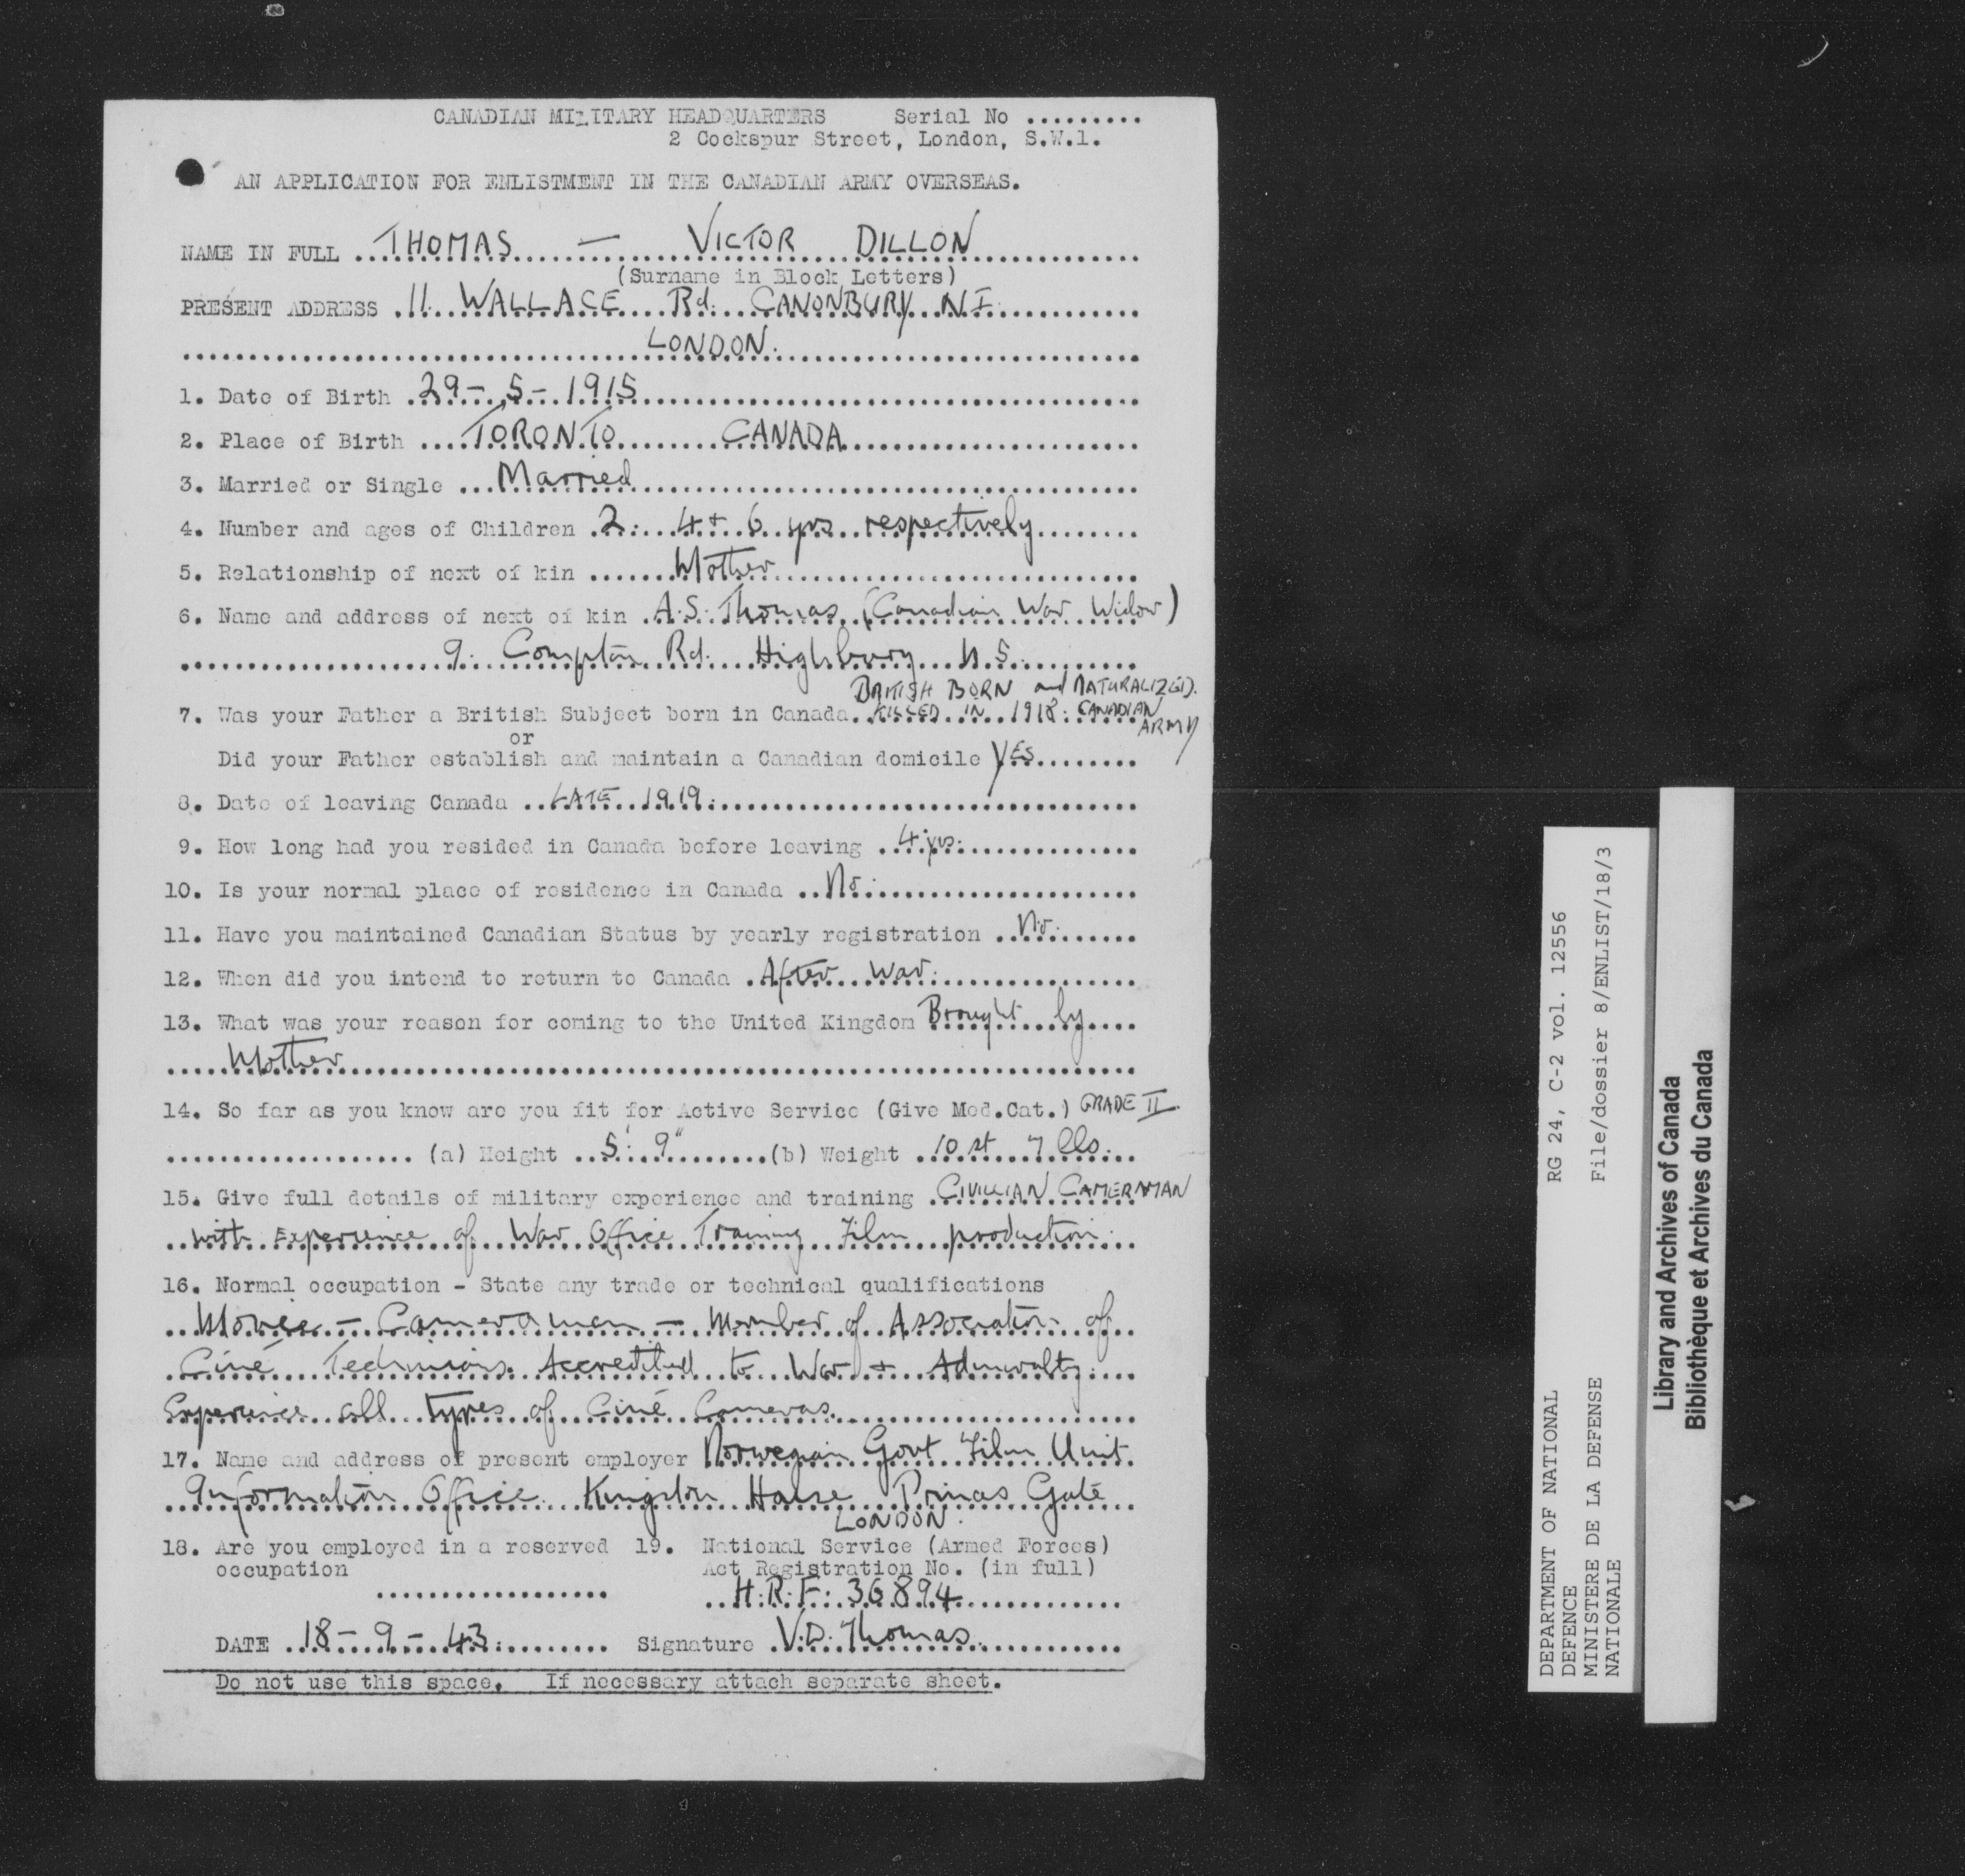 CANADIAN MILITARY HEADQUARTERS Serial No .........
2 Cockspur Street, London, S.W.1.
AN APPLICATION FOR ENLISTMENT IN THE CANADIAN ARMY OVERSEAS.
NAME IN FULL THOMAS — VICTOR DILLON
(Surname in Block Letters)
PRESENT ADDRESS 11. WALLACE Rd. CANONBURY N.I.
LONDON.
1. Date of Birth 29 - 5 - 1915
2. Place of Birth TORONTO CANADA
3. Married or Single Married
4. Number and ages of Children 2. 4 + 6 yrs respectively
5. Relationship of next of kin Mother
6. Name and address of next of kin A.S. Thomas (Canadian War Widow)
9. Compton Rd. Highbury N.5.
BRITISH BORN and NATURALIZED.
7. Was your Father a British Subject born in Canada KILLED IN 1918. CANADIAN
ARMY
or
Did your Father establish and maintain a Canadian domicile YES
8. Date of leaving Canada LATE 1919.
9. How long had you resided in Canada before leaving 4 yrs.
10. Is your normal place of residence in Canada No.
11. Have you maintained Canadian Status by yearly registration No.
12. When did you intend to return to Canada After War.
13. What was your reason for coming to the United Kingdom Brought by
Mother
14. So far as you know are you fit for Active Service (Give Med.Cat.) GRADE II.
(a) Height 5' 9" (b) Weight 10 st 7 lbs.
15. Give full details of military experience and training CIVILLIAN CAMERAMAN
with Experience of War Office Training Film production.
16. Normal occupation - State any trade or technical qualifications
Movie - Cameraman - Member of Association of
Ciné Technicians. Accredited to War + Admiralty.
Experience all types of Ciné Cameras.
17. Name and address of present employer Norwegian Govt Film Unit.
Information Office. Kingston House Princes Gate
LONDON.
18. Are you employed in a reserved 19. National Service (Armed Forces)
occupation Act Registration No. (in full)
H.R.F. 36894
DATE 18 - 9 - 43. Signature V.D. Thomas.
Do not use this space. If necessary attach separate sheet.
DEPARTMENT OF NATIONAL RG 24, C-2 vol. 12556
DEFENCE
MINISTERE DE LA DEFENSE File/dossier 8/ENLIST/18/3
NATIONALE
Library and Archives of Canada
Bibliothèque et Archives du Canada